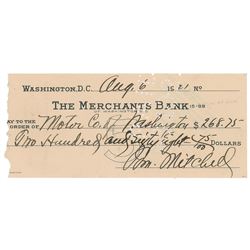 WASHINGTON, D.C. Aug. 6 1921 No
THE MERCHANTS BANK 15-98
OF WASHINGTON D.C.
PAY TO THE
ORDER OF Motor Co. of Washington $268.75
Two Hundred and sixty eight 75/100 DOLLARS
Wm. Mitchell